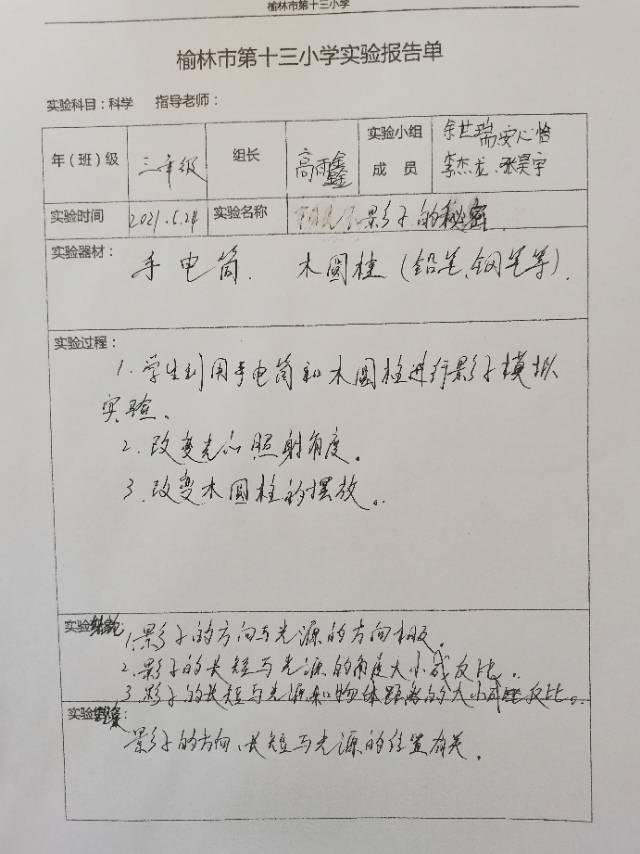 榆林市第十三小学
榆林市第十三小学实验报告单
实验科目：科学 指导老师：
年（班）级 三年级 组长 高雨鑫 实验小组成员 余世瑞 安心怡 李杰龙、张昊宇
实验时间 2021.5.24 实验名称 影子的秘密
实验器材：
手电筒. 木圆柱（铅笔、钢笔等）.
实验过程：
1.学生利用手电筒和木圆柱进行影子模拟
实验。
2.改变光的照射角度。
3.改变木圆柱的摆放。
实验
1.影子的方向与光源的方向相反。
2.影子的长短与光源的角度大小成反比。
3.影子的长短与光源和物体距离的大小成反比。
实验
影子的方向、长短与光源的位置有关。